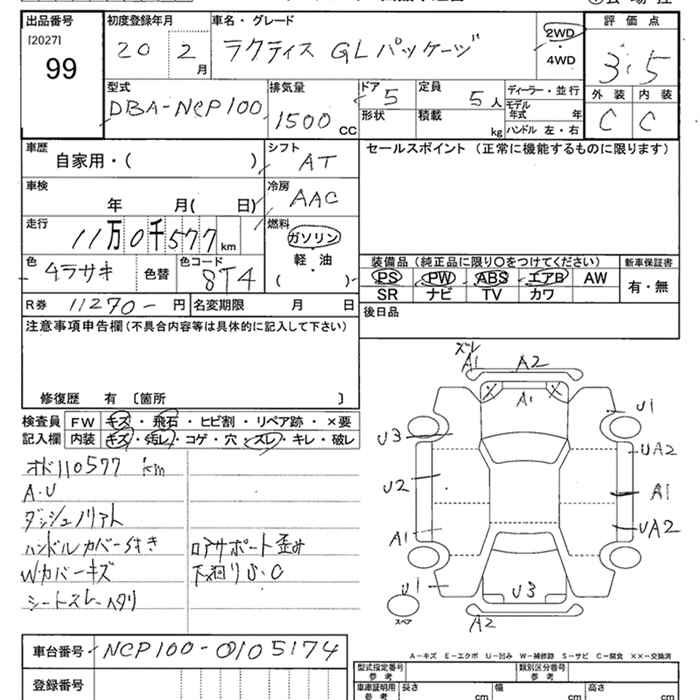 出品番号 初度登録年月 車名・グレード 評価点
[2027]
99
20 2月 ラクティス GLパッケージ 2WD・4WD 3.5
型式 排気量 ドア 定員 ディーラー・並行 外装 内装
DBA-NCP100 1500CC 5 5人 モデル年式 年 C C
形状 積載 kg ハンドル 左・右
車歴 シフト セールスポイント (正常に機能するものに限ります)
自家用・( ) AT
車検 冷房
年 月( 日) AAC
走行 燃料
11万0千577km ガソリン
軽・油
色 色替 色コード ( ) 装備品 (純正品に限り○をつけてください) 新車保証書
ムラサキ 8T4 PS PW ABS エアB AW 有・無
SR ナビ TV カワ
R券 11270-円 名変期限 月 日
後日品
注意事項申告欄 (不具合内容等は具体的に記入して下さい)
修復歴 有 〔箇所 〕
検査員記入欄 FW キズ・飛石・ヒビ割・リペア跡・×要
内装 キズ・汚レ・コゲ・穴・スレ・キレ・破レ
オド110577km
A・U
ダッシュノリアト
ハンドルカバー付き
Wカバーキズ
シートスレ・ヘタリ
ロアサポート歪み
下廻りS・C
ズレ
A1 A2
A1
U1
U3
UA2
U2
A1
UA2
A1
U1
U3
スペア
A2
車台番号 NCP100-0105174
登録番号
A-キズ E-エクボ U-凹み W-補修跡 S-サビ C-腐食 ××-交換済
型式指定番号 参考 類別区分番号 参考
車庫証明用 参考 長さ cm 幅 cm 高さ cm